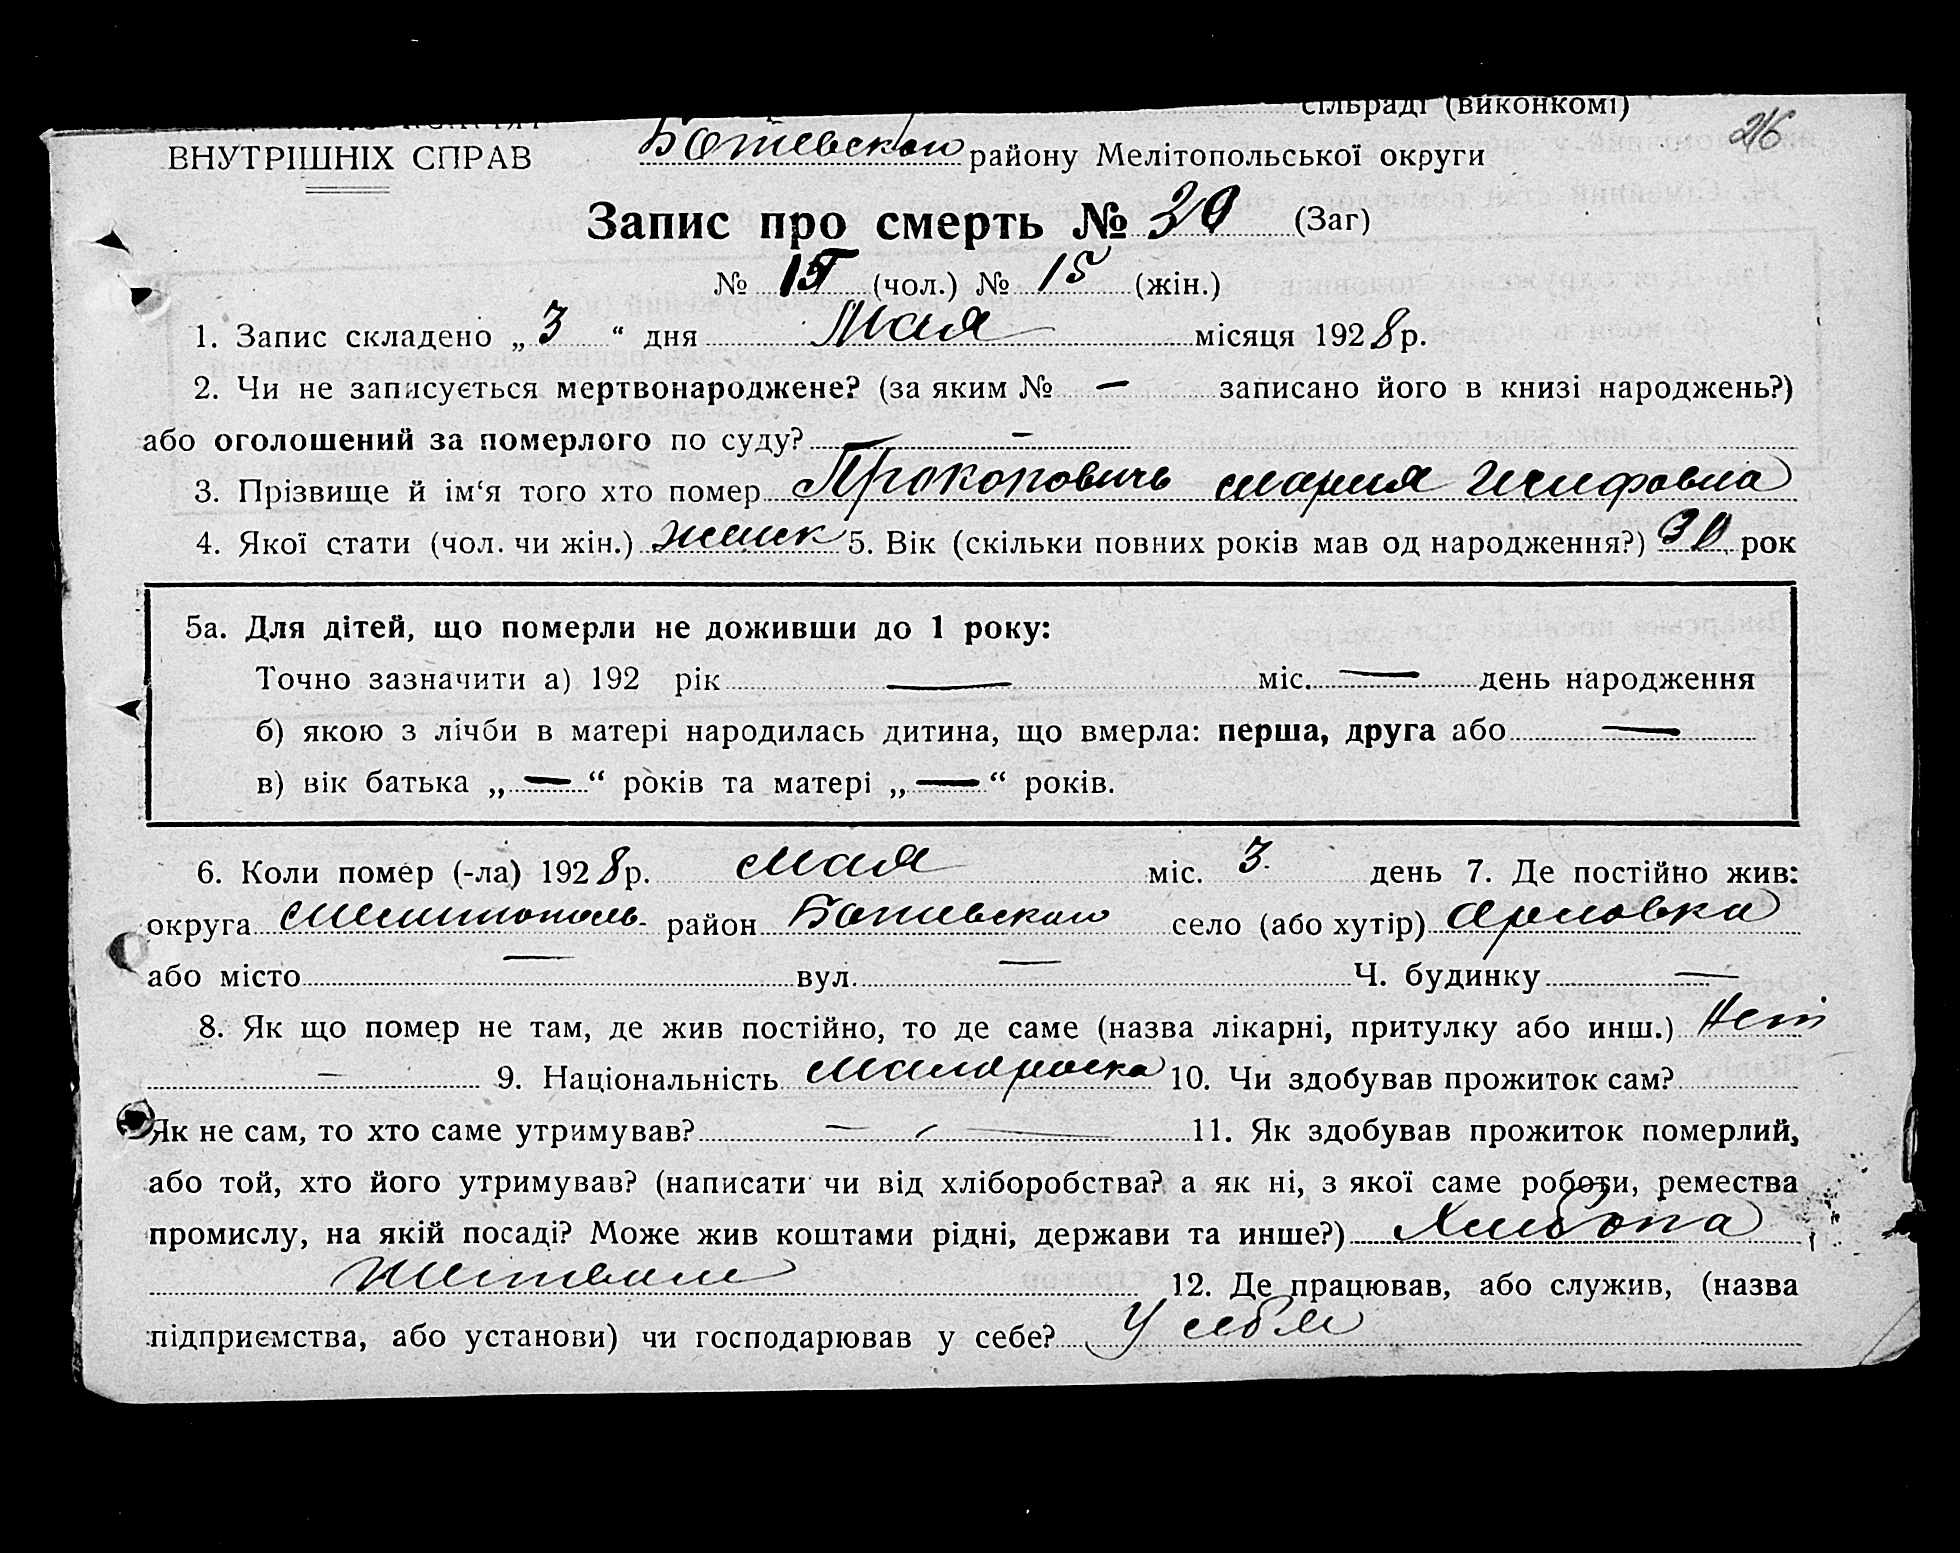 сільраді (виконкомі)
26
ВНУТРІШНІХ СПРАВ Ботевском району Мелітопольської округи
Запис про смерть № 30 (Заг)
№ 15 (чол.) № 15 (жін.)
1. Запис складено „ 3 “ дня Мая місяця 1928 р.
2. Чи не записується мертвонароджене? (за яким № — записано його в книзі народжень?)
або оголошений за померлого по суду? —
3. Прізвище й ім‘я того хто помер Прокоповичь Мария Исифовна
4. Якої стати (чол. чи жін.) женск 5. Вік (скільки повних років мав од народження?) 30 рок
5а. Для дітей, що померли не доживши до 1 року:
Точно зазначити а) 192 рік — міс. — день народження
б) якою з лічби в матері народилась дитина, що вмерла: перша, друга або —
в) вік батька „ — “ років та матері „ — “ років.
6. Коли помер (-ла) 1928 р. Мая міс. 3 день 7. Де постійно жив:
округа Мелитополь- район Ботевском село (або хутір) Орловка
або місто — вул. — Ч. будинку —
8. Як що помер не там, де жив постійно, то де саме (назва лікарні, притулку або инш.) Нет
— 9. Національність Малороска 10. Чи здобував прожиток сам?
Як не сам, то хто саме утримував? — 11. Як здобував прожиток померлий,
або той, хто його утримував? (написати чи від хліборобства? а як ні, з якої саме роботи, ремества
промислу, на якій посаді? Може жив коштами рідні, держави та инше?) Хлибопа
шеством 12. Де працював, або служив, (назва
підприємства, або установи) чи господарював у себе? У себя